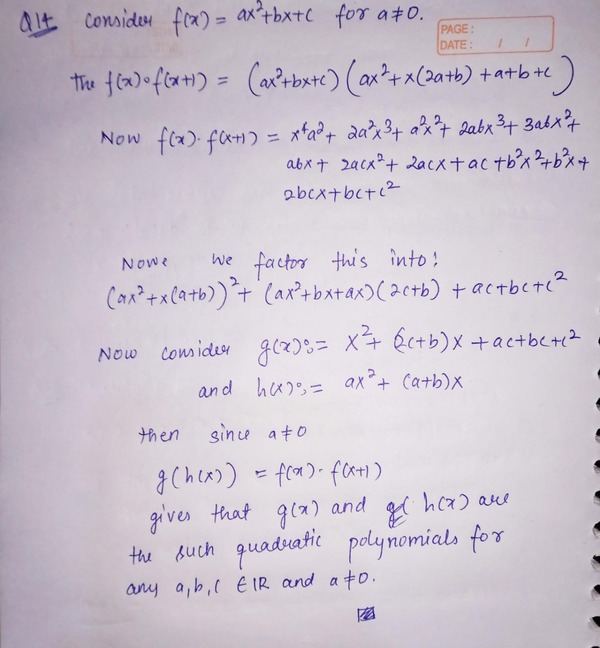 Q14 Consider f(x) = ax²+bx+c for a≠0.
PAGE:
DATE: / /
The f(x)∘f(x+1) = (ax²+bx+c)(ax²+x(2a+b)+a+b+c)
Now f(x)·f(x+1) = x⁴a²+ 2a²x³+ a²x²+ 2abx³+ 3abx²+
abx+ 2acx²+ 2acx+ac+b²x²+b²x+
2bcx+bc+c²
Nowe we factor this into:
(ax²+x(a+b))²+ (ax²+bx+ax)(2c+b) + ac+bc+c²
Now consider g(x):= x²+ (2c+b)x + ac+bc+c²
and h(x):= ax²+ (a+b)x
then since a≠0
g(h(x)) = f(x)·f(x+1)
gives that g(x) and h(x) are
the such quadratic polynomials for
any a,b,c ∈ IR and a≠0.